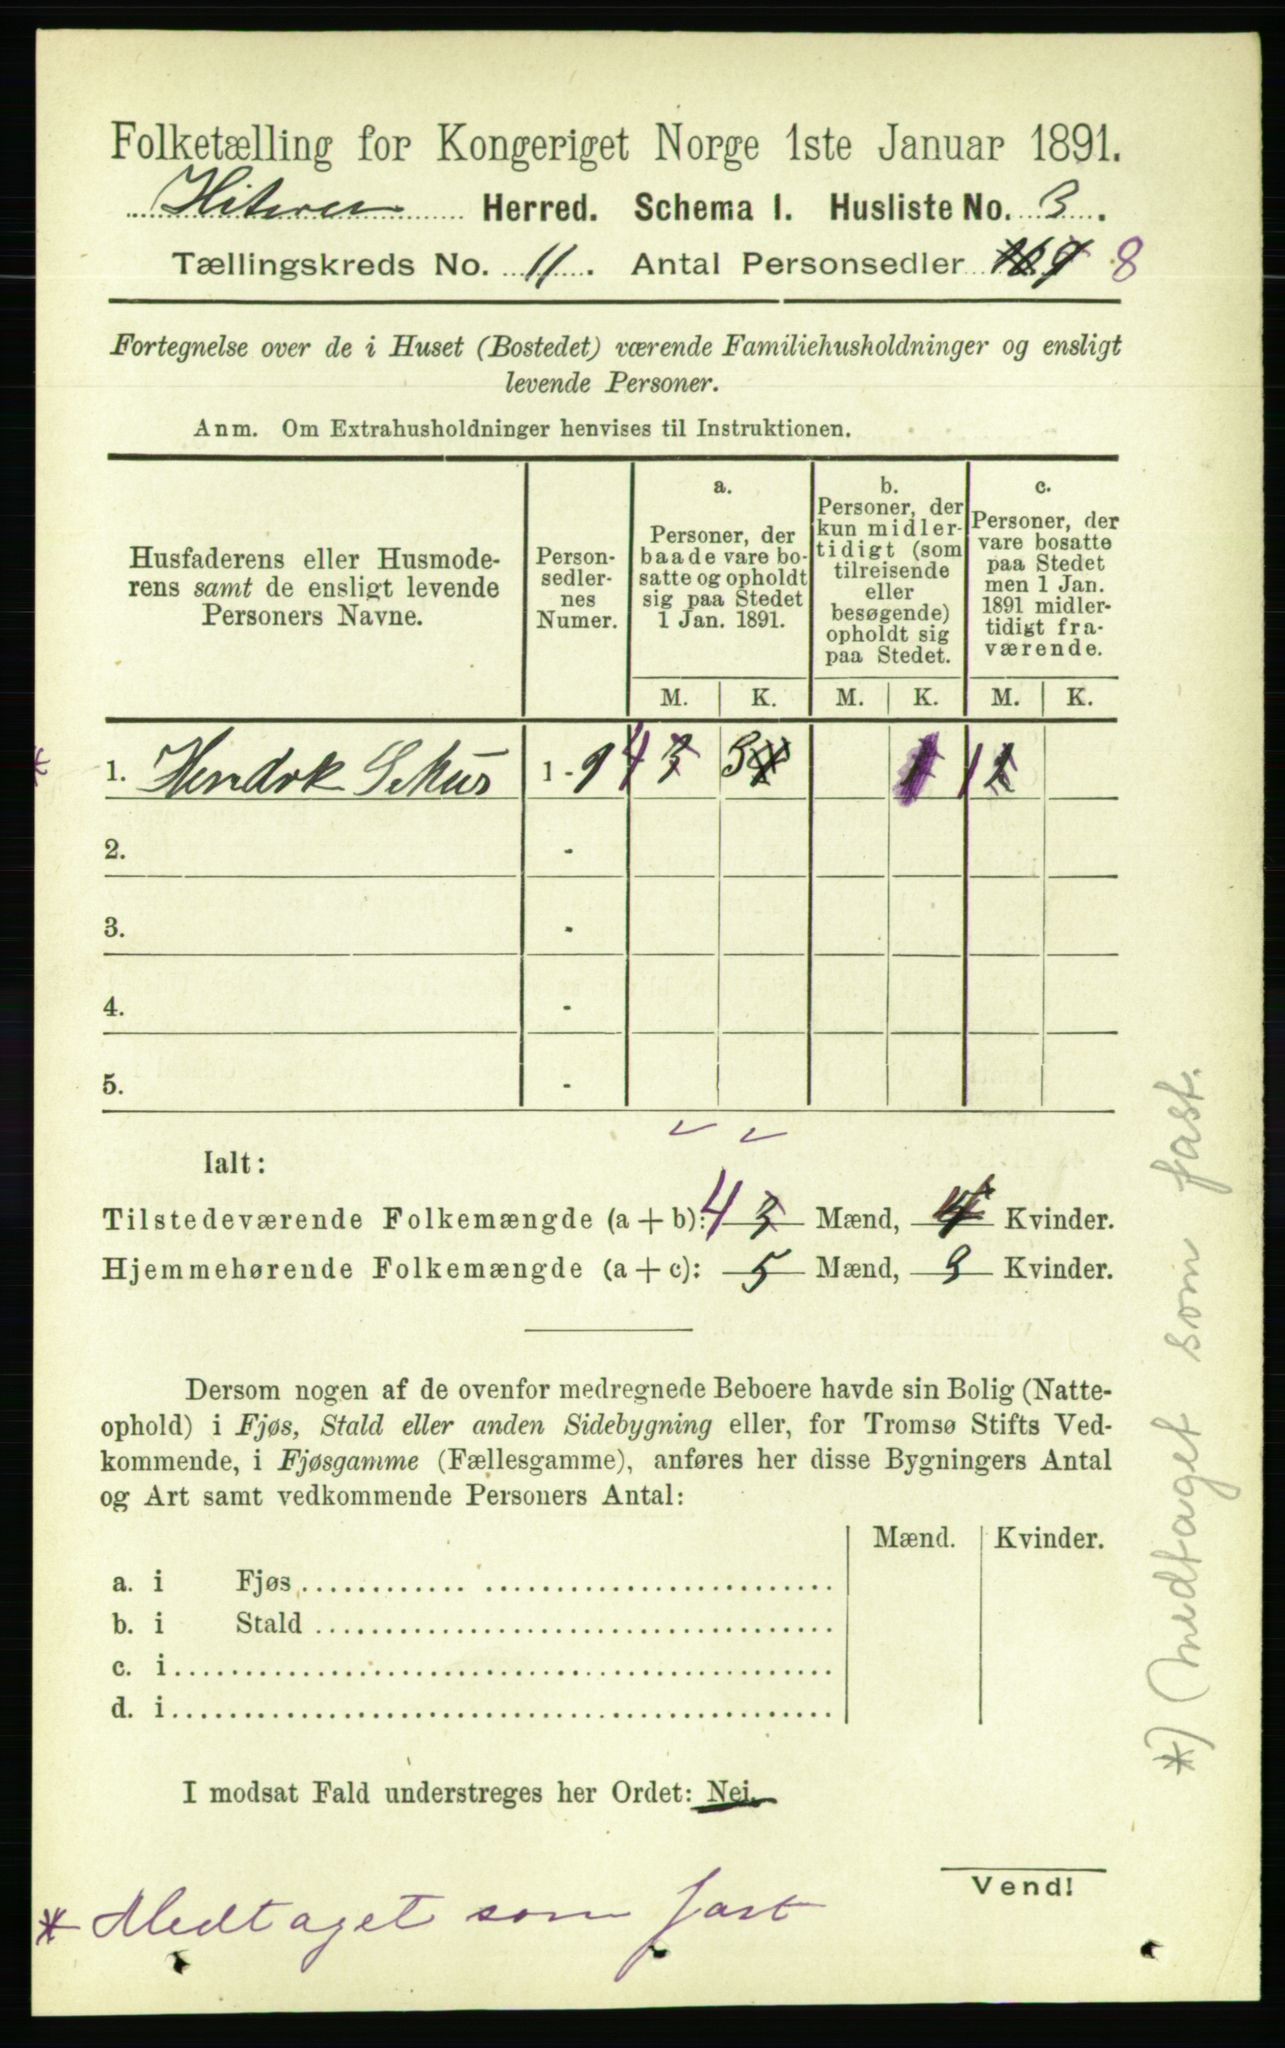 Folketælling for Kongeriget Norge 1ste Januar 1891.
Hiteren Herred. Schema I. Husliste No. 3.
Tællingskreds No. 11. Antal Personsedler 9 8
Fortegnelse over de i Huset (Bostedet) værende Familiehusholdninger og ensligt
levende Personer.
Anm. Om Extrahusholdninger henvises til Instruktionen.
Husfaderens eller Husmode-
rens samt de ensligt levende
Personers Navne.
Person-
sedler-
nes
Numer.
a.
Personer, der
baade vare bo-
satte og opholdt
sig paa Stedet
1 Jan. 1891.
b.
Personer, der
kun midler-
tidigt (som
tilreisende
eller
besøgende)
opholdt sig
paa Stedet.
c.
Personer, der
vare bosatte
paa Stedet
men 1 Jan.
1891 midler-
tidigt fra-
værende.
M. K. M. K. M. K.
* 1. Hendrk 1 - 9 4 3 3 4 1 1
2. -
3. -
4. -
5. -
Ialt:
Tilstedeværende Folkemængde (a + b): 4 3 Mænd, 4 Kvinder.
Hjemmehørende Folkemængde (a + c): 5 Mænd, 3 Kvinder.
Dersom nogen af de ovenfor medregnede Beboere havde sin Bolig (Natte-
ophold) i Fjøs, Stald eller anden Sidebygning eller, for Tromsø Stifts Ved-
kommende, i Fjøsgamme (Fællesgamme), anføres her disse Bygningers Antal
og Art samt vedkommende Personers Antal:
Mænd. Kvinder.
a. i Fjøs
b. i Stald
c. i
d. i
I modsat Fald understreges her Ordet: Nei.
Vend!
* Medtaget som fast
*) Medtaget som fast.